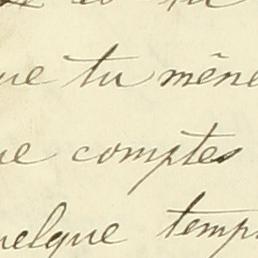 et tu
ue tu mène
ue comptes
uelque temps